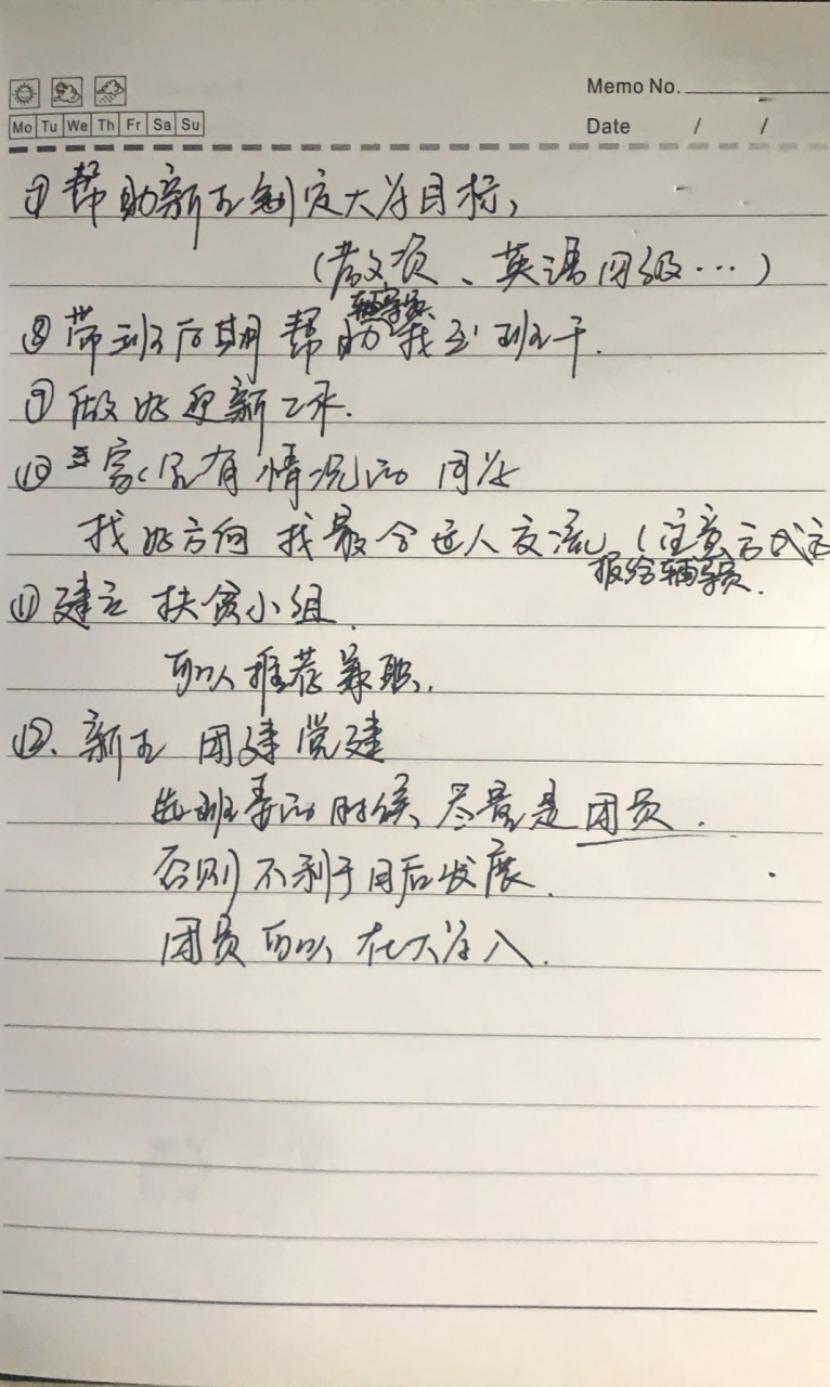 Memo No.
Mo Tu We Th Fr Sa Su
Date / /
⑦帮助新生制定大学目标,
(教资、英语四级…)
辅导员
⑧带班后期 帮助 找到 班干.
⑨做好迎新工作.
⑩ 家里有情况的 同学
找好方向 找最合适人交流 (注意方式方
报给辅导员.
⑪建立 扶贫小组.
可以推荐兼职.
⑫. 新生 团建 党建
选班委的时候、尽量是团员.
否则不利于日后发展.
团员 可以 在大学入.